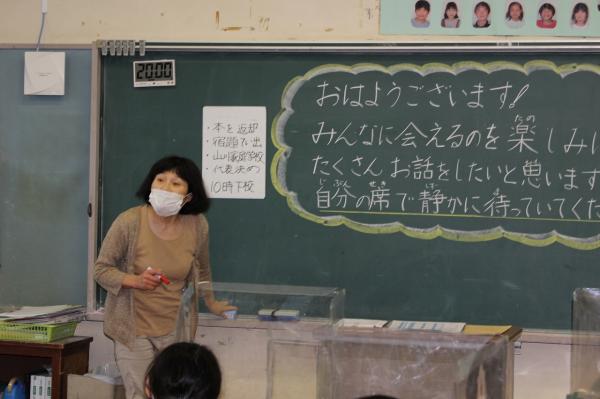 20:00
・本を返却
・宿題
・代表決め
10時下校
おはようございます!
みんなに会えるのを楽しみに
たの
たくさんお話をしたいと思います
じぶん せき しず ま
自分の席で静かに待っていてくだ